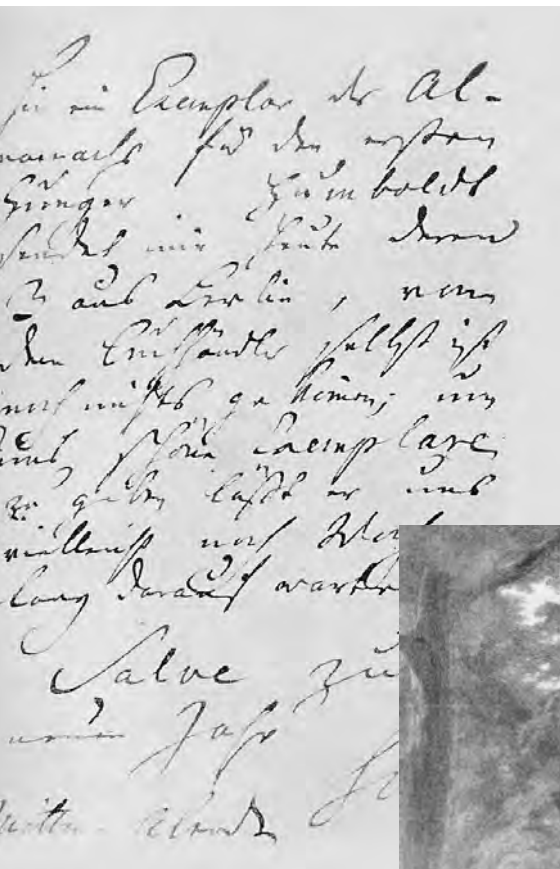 Hier ein Exemplar des Al-
manachs für den ersten
Hunger. Humboldt
sendet mir heute deren
3 aus Berlin, von
dem Buchhändler selbst ist
noch nichts gekommen; um
uns schöne Exemplare
zu geben läßt er uns
vielleicht noch
lang darauf warten
Salve zu
neuen Jahr
Abend